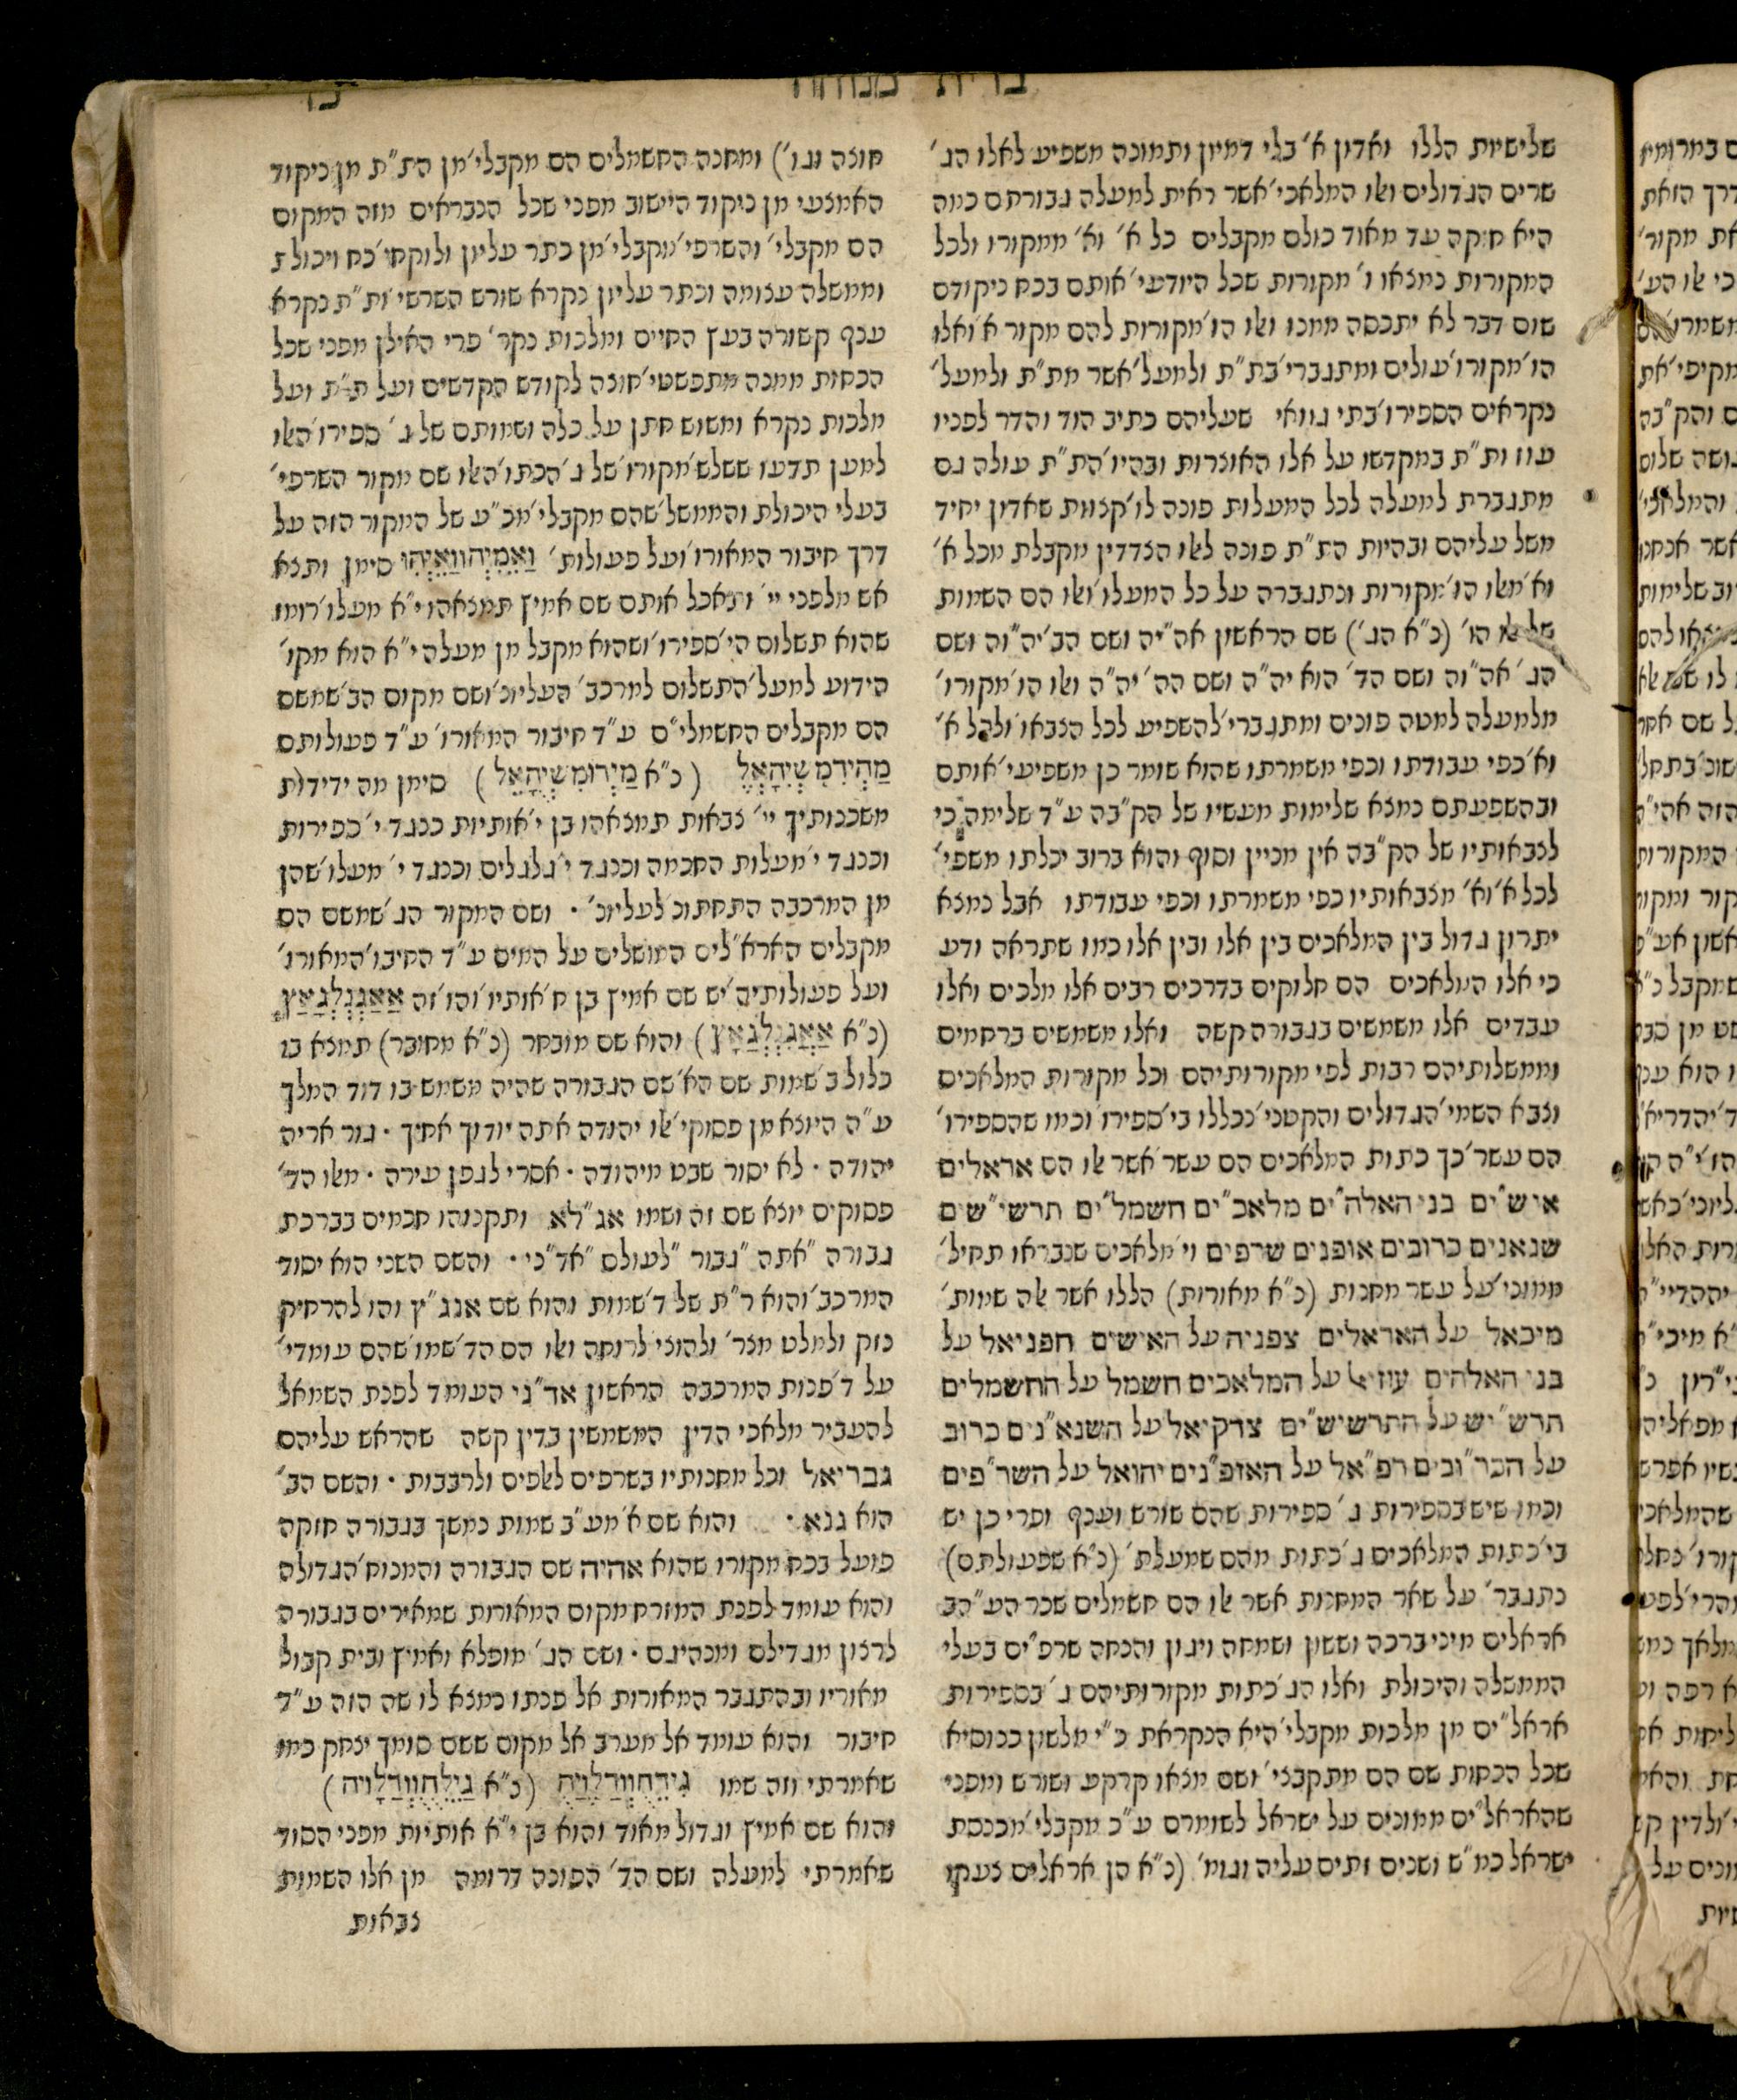 ברית מנוחה
שלישיות הללו ואדון א׳ בלי דמיון ותמונה משפיע לאלו הג׳
שרים הגדולים ואלו המלאכי׳ אשר ראית למעלה גבורתם כמה
היא חזקה עד מאוד כולם מקבלים כל א׳ וא׳ ממקורו ולכל
המקורות נמצאו ו׳ מקורות שכל היודעי׳ אותם בכח ניקודם
שום דבר לא יתכסה ממנו ואלו הו׳ מקורות להם מקור א׳ ואלו
הו׳ מקורו׳ עולים ומתגברי׳ בת״ת ולמעל׳ אשר מת״ת ולמעל׳
נקראים הספירו׳ בתי גוואי שעליהם כתיב הוד והדר לפניו
עוז ות״ת במקדשו על אלו האוצרות ובהיו׳ הת״ת עולה גם
מתגברת למעלה לכל המעלות פונה לו׳ קצוות שאדון יחיד
משל עליהם ובהיות הת״ת פונה לאלו הצדדין מקבלת מכל א׳
וא׳ מאלו הו׳ מקורות ונתגברה על כל המעלו׳ ואלו הם השמות
של אלו הו׳ (נ״א הג׳) שם הראשון אה״יה ושם הב׳ יה״וה ושם
הג׳ אה״וה ושם הד׳ הוא יה״ה ושם הה׳ יה״ה ואלו הו׳ מקורו׳
מלמעלה למטה פונים ומתגברי׳ להשפיע לכל הצבאו׳ ולכל א׳
וא׳ כפי עבודתו וכפי משמרתו שהוא שומר כן משפיעי׳ אותם
ובהשפעתם נמצא שלימות מעשיו של הק״בה ע״ד שלימה כי
לצבאותיו של הק״בה אין מניין וסוף והוא ברוב יכלתו משפי׳
לכל א׳ וא׳ מצבאותיו כפי משמרתו וכפי עבודתו אבל נמצא
יתרון גדול בין המלאכים בין אלו ובין אלו כמו שתראה ודע
כי אלו המלאכים הם חלוקים בדרכים רבים אלו מלכים ואלו
עבדים אלו משמשים בגבורה קשה ואלו משמשים ברחמים
וממשלותיהם רבות לפי מקורותיהם וכל מקורות המלאכים
וצבא השמי׳ הגדולים והקטני׳ נכללו בי׳ ספירו׳ וכמו שהספירו׳
הם עשר׳ כך כתות המלאכים הם עשר׳ אשר אלו הם אראלים
איש״ים בני האלה״ים מלאכ״ים חשמל״ים תרשי״שים
שנאנים כרובים אופנים שרפים וי׳ מלאכים שנבראו תחיל׳
ממוני׳ על עשר מחנות (נ״א מאורות) הללו אשר אלה שמות׳
מיכאל על האראלים צפניה על האישים חפניאל על
בני האלהים עוזיאל על המלאכים חשמל על החשמלים
תרש״יש על התרשיש״ים צדקיאל על השנא״נים כרוב
על הכר״ובים רפ״אל על האופ״נים יהואל על השר״פים
וכמו שיש בספירות ג׳ ספירות שהם שורש וענף ופרי כן יש
בי׳ כתות המלאכים ג׳ כתות מהם שמעלת׳ (נ״א שפעולתם)
נתגבר׳ על שאר המחנות אשר אלו הם חשמלים שכר הע״הב
אראלים מיני ברכה וששון ושמחה ויגון והנחה שרפ״ים בעלי
הממשלה והיכולת ואלו הג׳ כתות מקורותיהם ג׳ בספירות
אראל״ים מן מלכות מקבלי׳ היא הנקראת כ״י מלשון כנוסיא
שכל הכחות שם הם מתקבצי׳ ושם מצאו קרקע ושורש ומפני
שהאראל״ים ממונים על ישראל לשומרם ע״כ מקבלי׳ מכנסת
ישראל כמ״ש ושנים זתים עליה וגומ׳ (נ״א הן אראלים צעקו
חוצה וגו׳) ומחנה החשמלים הם מקבלי׳ מן הת״ת מן ניקוד
האמצעי מן ניקוד היישוב מפני שכל הנבראים מזה המקום
הם מקבלי׳ והשרפי׳ מקבלי׳ מן כתר עליון ולוקחי׳ כח ויכולת
וממשלה עצומה וכתר עליון נקרא שורש השרשי׳ ות״ת נקרא
ענף קשורה בעץ החיים ומלכות נקר׳ פרי האילן מפני שכל
הכחות ממנה מתפשטי׳ חוצה לקודש הקדשים ועל ת״ת ועל
מלכות נקרא ומשוש חתן על כלה ושמותם של ג׳ ספירו׳ האלו
למען תדעו ששלש׳ מקורו׳ של ג׳ הכתו׳ האלו שם מקור השרפי׳
בעלי היכולת והממשל׳ שהם מקבלי׳ מכ״ע של המקור הזה על
דרך חיבור המאורו׳ ועל פעולות׳ סימן ותצא
אש מלפני יי׳ ותאכל אותם שם אמיץ תמצאהו י״א מעלו׳ רומו
שהוא תשלום הי׳ ספירו׳ ושהוא מקבל מן מעלה י״א הוא מקו׳
הידוע למעל׳ התשלום למרכב׳ העליונ׳ ושם מקום הב׳ שמשם
הם מקבלים החשמלי״ם ע״ד חיבור המאורו׳ ע״ד פעולותם
מַהְיִרִמִשְׁיִהָאֶל (נ״א מַיְרוּמִשְׁיְהָאֵל) סימן מה ידידות
משכנותיך יי׳ צבאות תמצאהו בן י׳ אותיות כנגד י׳ ספירות
וכנגד י׳ מעלות החכמה וכנגד י׳ גלגלים וכנגד י׳ מעלו׳ שהן
מן המרכבה התחתונ׳ לעליונ׳ · ושם המקור הג׳ שמשם הם
מקבלים הארא״לים המושלים על המים ע״ד החיבו׳ המאורו׳
ועל פעולותיה׳ יש שם אמיץ בן ח׳ אותיו׳ והו׳ זה
והוא שם מובחר (נ״א מחובר) תמצא בו
כלול ב׳ שמות שם הא׳ שם הגבורה שהיה משמש בו דוד המלך
ע״ה היוצא מן פסוקי׳ אלו יהודה אתה יודוך אחיך · גור אריה
יהודה · לא יסור שבט מיהודה · אסרי לגפן עירה · מאלו הד׳
פסוקים יוצא שם זה ושמו אג״לא ותקנוהו חכמים בברכת
גבורה ״אתה ״גבור ״לעולם ״אד״ני · והשם השני הוא יסוד
המרכב׳ והוא ר״ת של ד׳ שמות והוא שם אנג״ץ והו׳ להרחיק
נזק ולמלט מצר׳ ולהוצי׳ לרוחה ואלו הם הד׳ שמו׳ שהם עומדי׳
על ד׳ פנות המרכבה הראשון אד״ני העומד לפנת השמאל
להעביר מלאכי הדין המשמשין בדין קשה שהראש עליהם
גבריאל וכל מחנותיו בשרפים לאלפים ולרבבות · והשם הב׳
הוא גנא · והוא שם א׳ מע״ב שמות נמשך בגבורה חזקה
פועל בכח מקורו שהוא אהיה שם הגבורה והמכוח׳ הגדולה
והוא עומד לפנת המזרח מקום המאורות שמאירים בגבורה
לרצון מגדילם ומנהיגם · ושם הג׳ מופלא ואמיץ ובית קבול
מאוריו ובהתגבר המאורות אל פנתו נמצא לו שה הזה ע״ד
חיבור והוא עומד אל מערב אל מקום ששם סומך יצחק כמו
שאמרתי וזה שמו
והוא שם אמיץ וגדול מאוד והוא בן י״א אותיות מפני הסוד
שאמרתי למעלה ושם הד׳ הפונה דרומה מן אלו השמות
צבאות